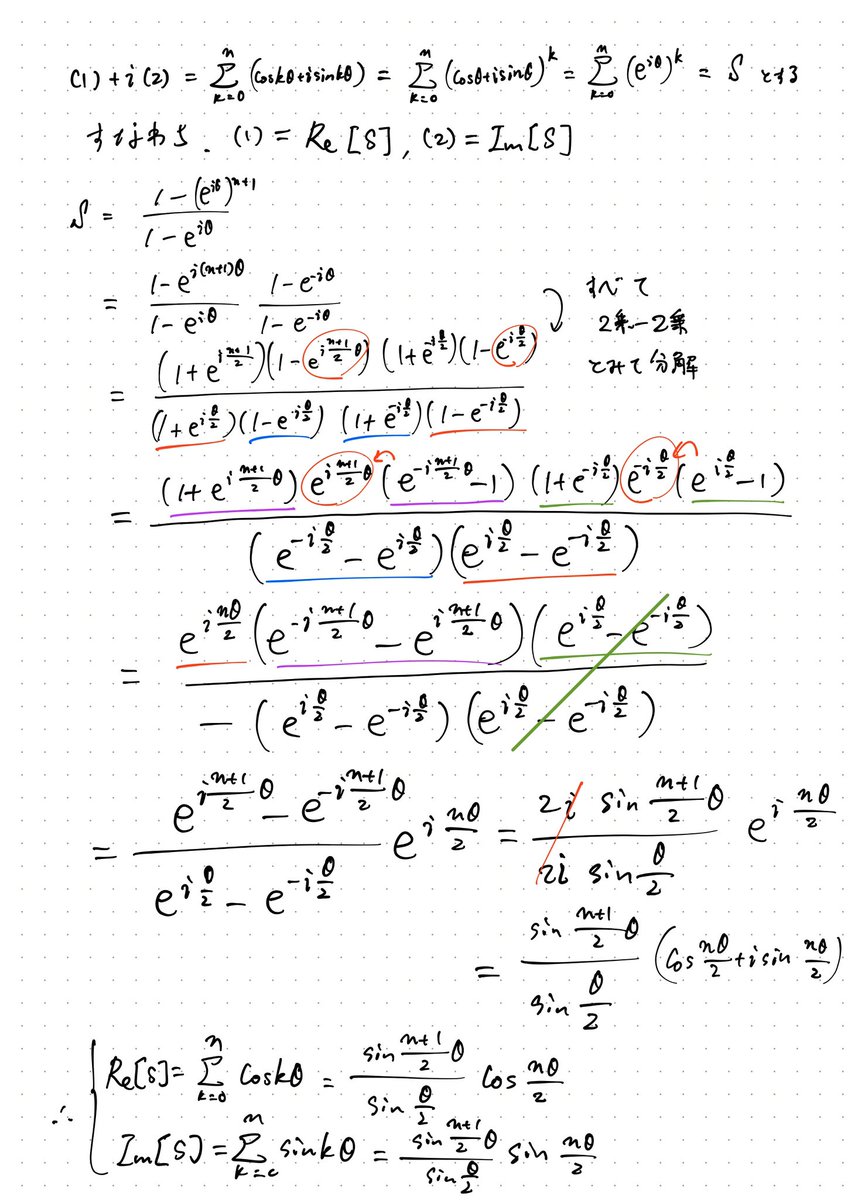 (1) + i(2) = Σ_{k=0}^{n} (cos kθ + i sin kθ) = Σ_{k=0}^{n} (cosθ + i sinθ)^k = Σ_{k=0}^{n} (e^{iθ})^k = S とする
すなわち、(1) = Re[S], (2) = Im[S]
S = (1 - (e^{iθ})^{n+1}) / (1 - e^{iθ})
= (1 - e^{i(n+1)θ}) / (1 - e^{iθ}) (1 - e^{-iθ}) / (1 - e^{-iθ})
すべて
2乗-2乗
とみて分解
= (1 + e^{i(n+1)/2})(1 - e^{i(n+1)/2 θ}) (1 + e^{-iθ/2})(1 - e^{-iθ/2}) / (1 + e^{iθ/2})(1 - e^{-iθ/2}) (1 + e^{-iθ/2})(1 - e^{-iθ/2})
= (1 + e^{i(n+1)/2 θ}) e^{i(n+1)/2 θ} (e^{-i(n+1)/2 θ} - 1) (1 + e^{-iθ/2}) e^{-iθ/2} (e^{iθ/2} - 1) / (e^{-iθ/2} - e^{iθ/2})(e^{iθ/2} - e^{-iθ/2})
= e^{inθ/2} (e^{-i(n+1)/2 θ} - e^{i(n+1)/2 θ})(e^{iθ/2} - e^{-iθ/2}) / -(e^{iθ/2} - e^{-iθ/2})(e^{iθ/2} - e^{-iθ/2})
= (e^{i(n+1)/2 θ} - e^{-i(n+1)/2 θ}) / (e^{iθ/2} - e^{-iθ/2}) e^{i nθ/2} = (2i sin (n+1)/2 θ) / (2i sin θ/2) e^{i nθ/2}
= (sin (n+1)/2 θ) / (sin θ/2) (cos nθ/2 + i sin nθ/2)
∴ { Re[S] = Σ_{k=0}^{n} cos kθ = (sin (n+1)/2 θ) / (sin θ/2) cos nθ/2
Im[S] = Σ_{k=0}^{n} sin kθ = (sin (n+1)/2 θ) / (sin θ/2) sin nθ/2